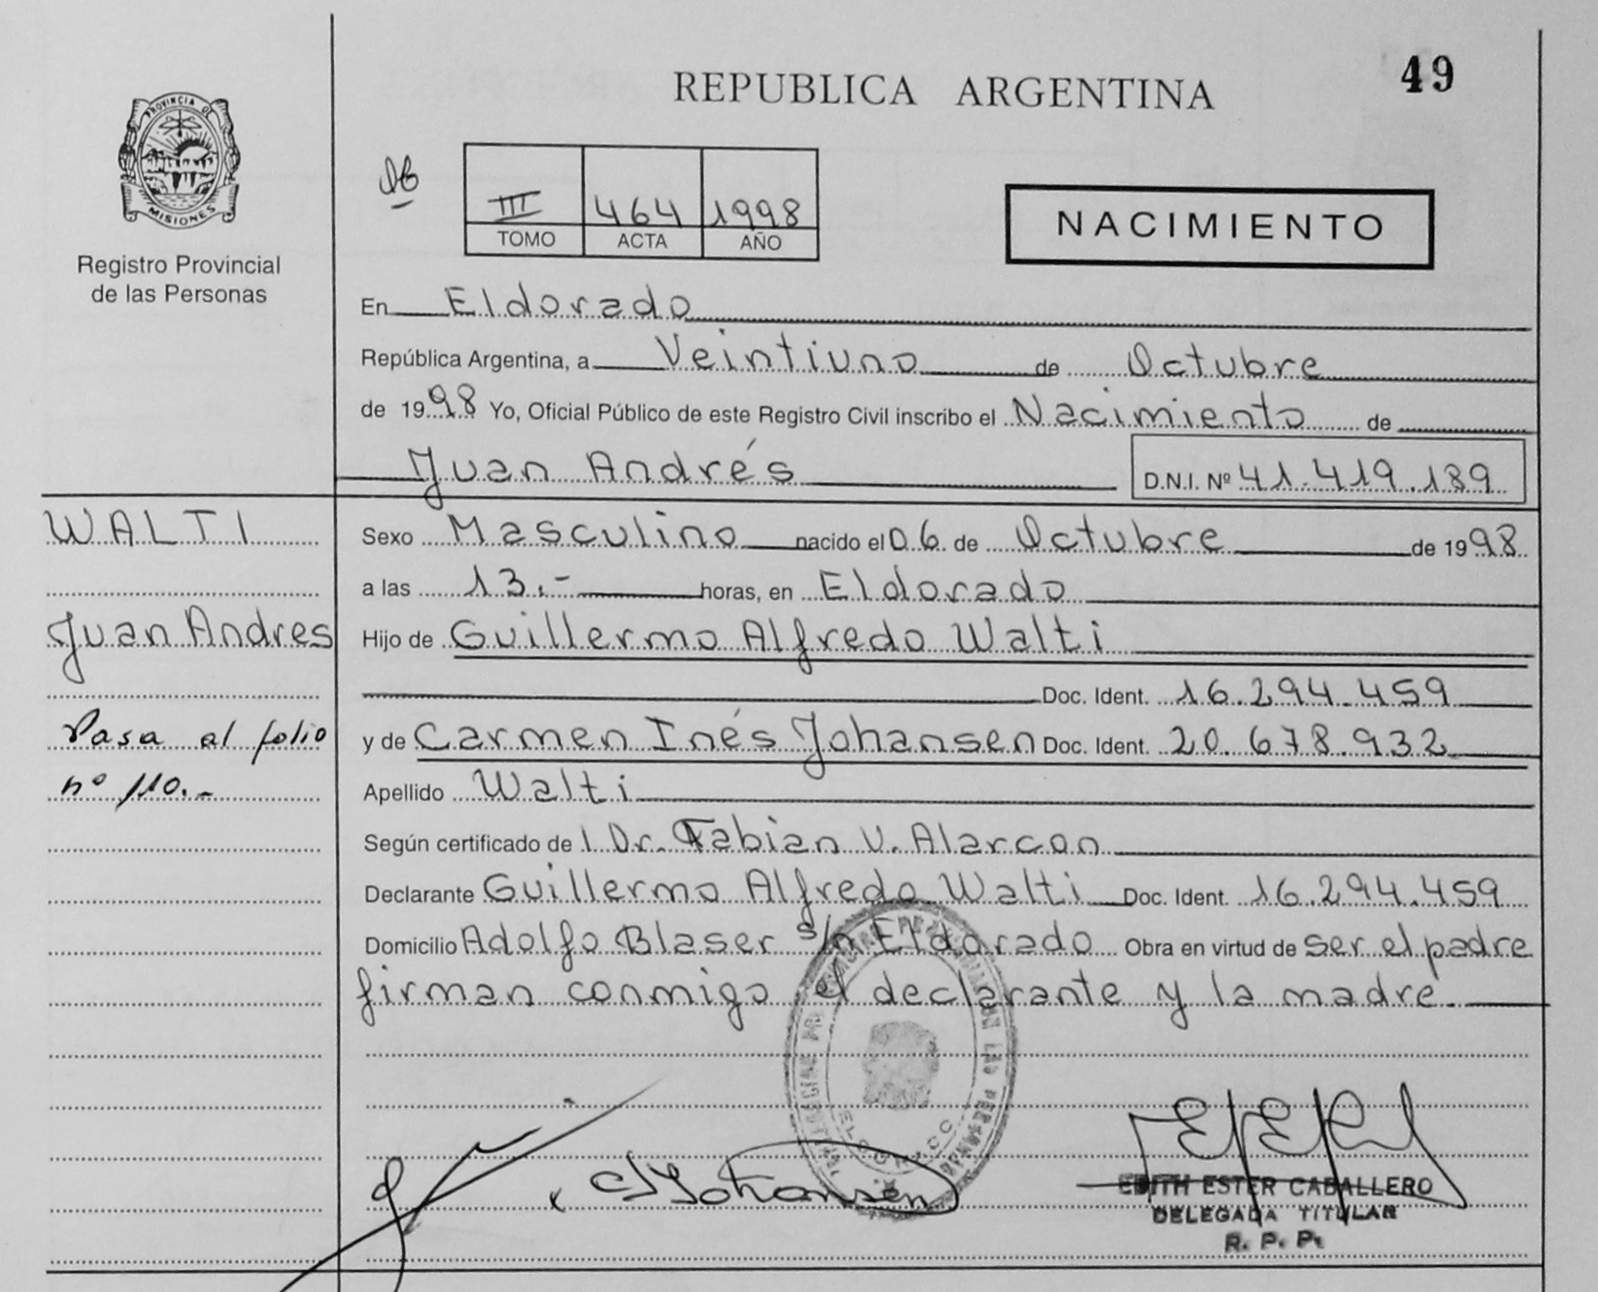 REPUBLICA ARGENTINA
49
PROVINCIA DE
MISIONES
Registro Provincial
de las Personas
III 464 1998
TOMO ACTA AÑO
NACIMIENTO
En Eldorado
República Argentina, a Veintiuno de Octubre
de 1998 Yo, Oficial Público de este Registro Civil inscribo el Nacimiento de
Juan Andrés D.N.I. Nº 41.419.189
WALTI
Juan Andres
Pasa al folio
nº 110.-
Sexo Masculino nacido el 06 de Octubre de 1998
a las 13.- horas, en Eldorado
Hijo de Guillermo Alfredo Walti
Doc. Ident. 16.294.459
y de Carmen Inés Johansen Doc. Ident. 20.678.932
Apellido Walti
Según certificado de l Dr. Fabian V. Alarcon
Declarante Guillermo Alfredo Walti Doc. Ident. 16.294.459
Domicilio Adolfo Blaser s/n Eldorado Obra en virtud de ser el padre
firman conmigo el declarante y la madre.
Johansen
EDITH ESTER CABALLERO
DELEGADA TITULAR
R. P. P.